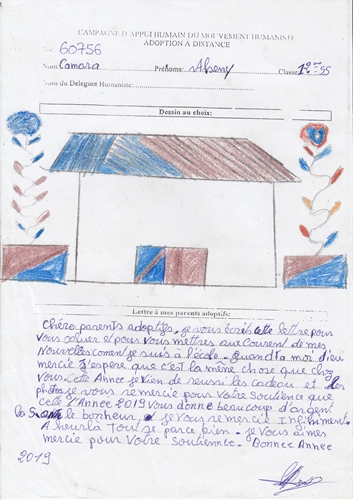 CAMPAGNE D'APPUI HUMAIN DU MOUVEMENT HUMANISTE
ADOPTION A DISTANCE
60756
Nom Camara Prénoms: Alseny Classe 12em SS
Nom du Delegué Humaniste:
Dessin au choix:
Lettre à mes parents adoptifs:
Chére parents adoptifs, je vous écris cette lettre pour
vous saluer et pour vous mettres aux courent de mes
Nouvelles coment je suis à l'école. Quand à moi dieu
mercie J'espère que c'est la même chose que chez
vous cette Annee je vien de reussi les cadeau et les
photos je vous remercie pour votre soutience que
cette L'Année 2019 vous donne beaucoup d'argent
la Sante le bonheur je vous remercie Infiniment
A heurla Tout se parce bien. je vous aimes
mercie pour votre soutience. Bonnee Annee
2019